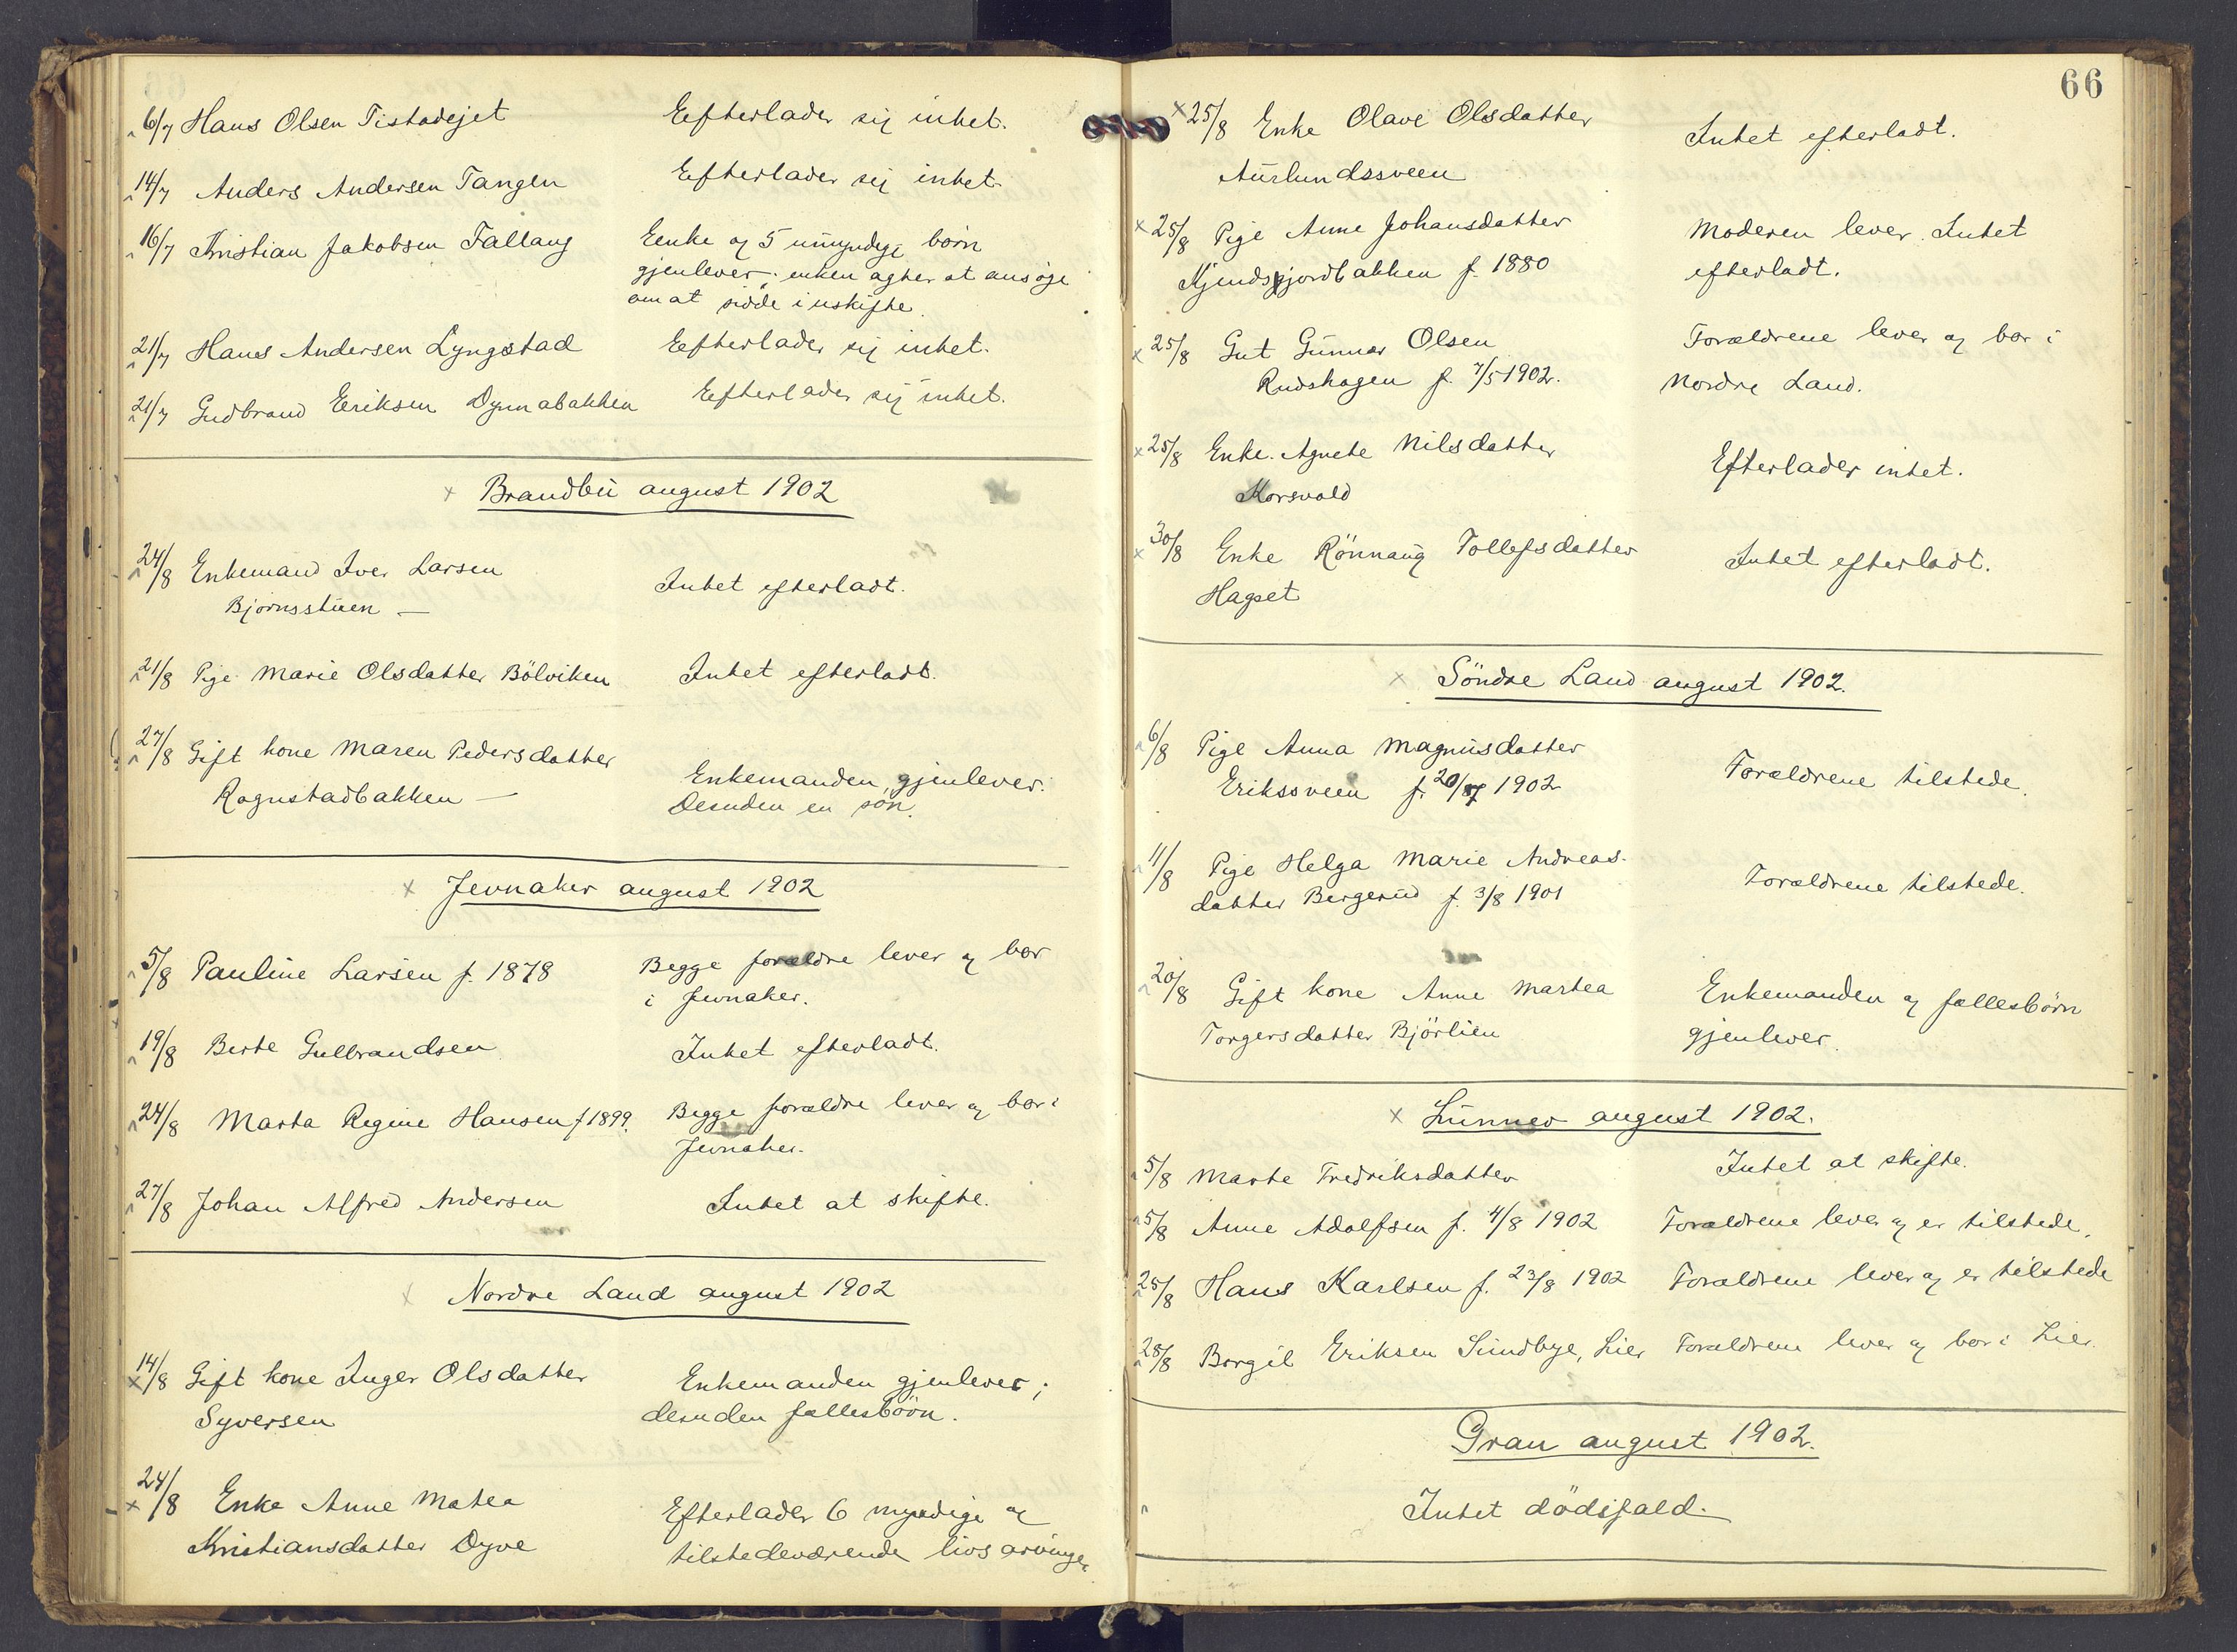 6/7 Hans Olsen Tistadejet Efterlader sig intet.
14/7 Anders Andersen Tangen Efterlader sig intet.
16/7 Kristian Jakobsen Fallang Enke og 5 umyndige börn
gjenlever; enken agter at ansöge
om at sidde i uskifte.
21/7 Hans Andersen Lyngstad Efterlader sig intet.
21/7 Gudbrand Eriksen Dynnabakken Efterlader sig intet.
Brandbu august 1902
24/8 Enkemand Iver Larsen Intet efterladt.
Bjørnsstuen —
21/8 Pige Marie Olsdatter Bölviken Intet efterladt.
27/8 Gift kone Maren Pedersdatter
Rognstadbakken — Enkemanden gjenlever.
Desuden en sön.
Jevnaker august 1902
5/8 Pauline Larsen f. 1878 Begge forældre lever og bor
i Jevnaker.
19/8 Berte Gulbrandsen Intet efterladt.
24/8 Marta Regine Hansen f 1899. Begge forældre lever og bor i
Jevnaker.
27/8 Johan Alfred Andersen Intet at skifte.
Nordre Land august 1902
14/8 Gift kone Inger Olsdatter Enkemanden gjenlever;
Syversen desuden fællesbörn.
24/8 Enke Anne Matea Efterlader 6 myndige og
Kristiansdatter Dyve tilstedeværende livsarvinger
66
25/8 Enke Olave Olsdatter Intet efterladt.
Aurlundssveen
25/8 Pige Anne Johansdatter Moderen lever. Intet
Kjendsgjordbakken f. 1880 efterladt.
25/8 Gut Gunnar Olsen Forældrene lever og bor i
Rudshagen f. 7/5 1902. Nordre Land.
25/8 Enke Agnete Nilsdatter Efterlader intet.
Korsvold
30/8 Enke Rönnaug Tollefsdatter Intet efterladt.
Hagset
Söndre Land august 1902.
6/8 Pige Anna Magnusdatter Forældrene tilstede.
Erikssveen f. 20/7 1902
11/8 Pige Helga Marie Andreas-
datter Bergerud f. 3/8 1901 Forældrene tilstede.
20/8 Gift kone Anne Martea Enkemanden og fællesbörn
Torgersdatter Bjørlien gjenlever.
Lunner august 1902.
5/8 Marte Fredriksdatter Intet at skifte.
5/8 Anne Adolfsen f. 4/8 1902 Forældrene lever og er tilstede.
25/8 Hans Karlsen f. 23/8 1902 Forældrene lever og er tilstede
28/8 Borgil Eriksen Sundbye, Lier Forældrene lever og bor i Lier.
Gran august 1902.
Intet dödsfald.